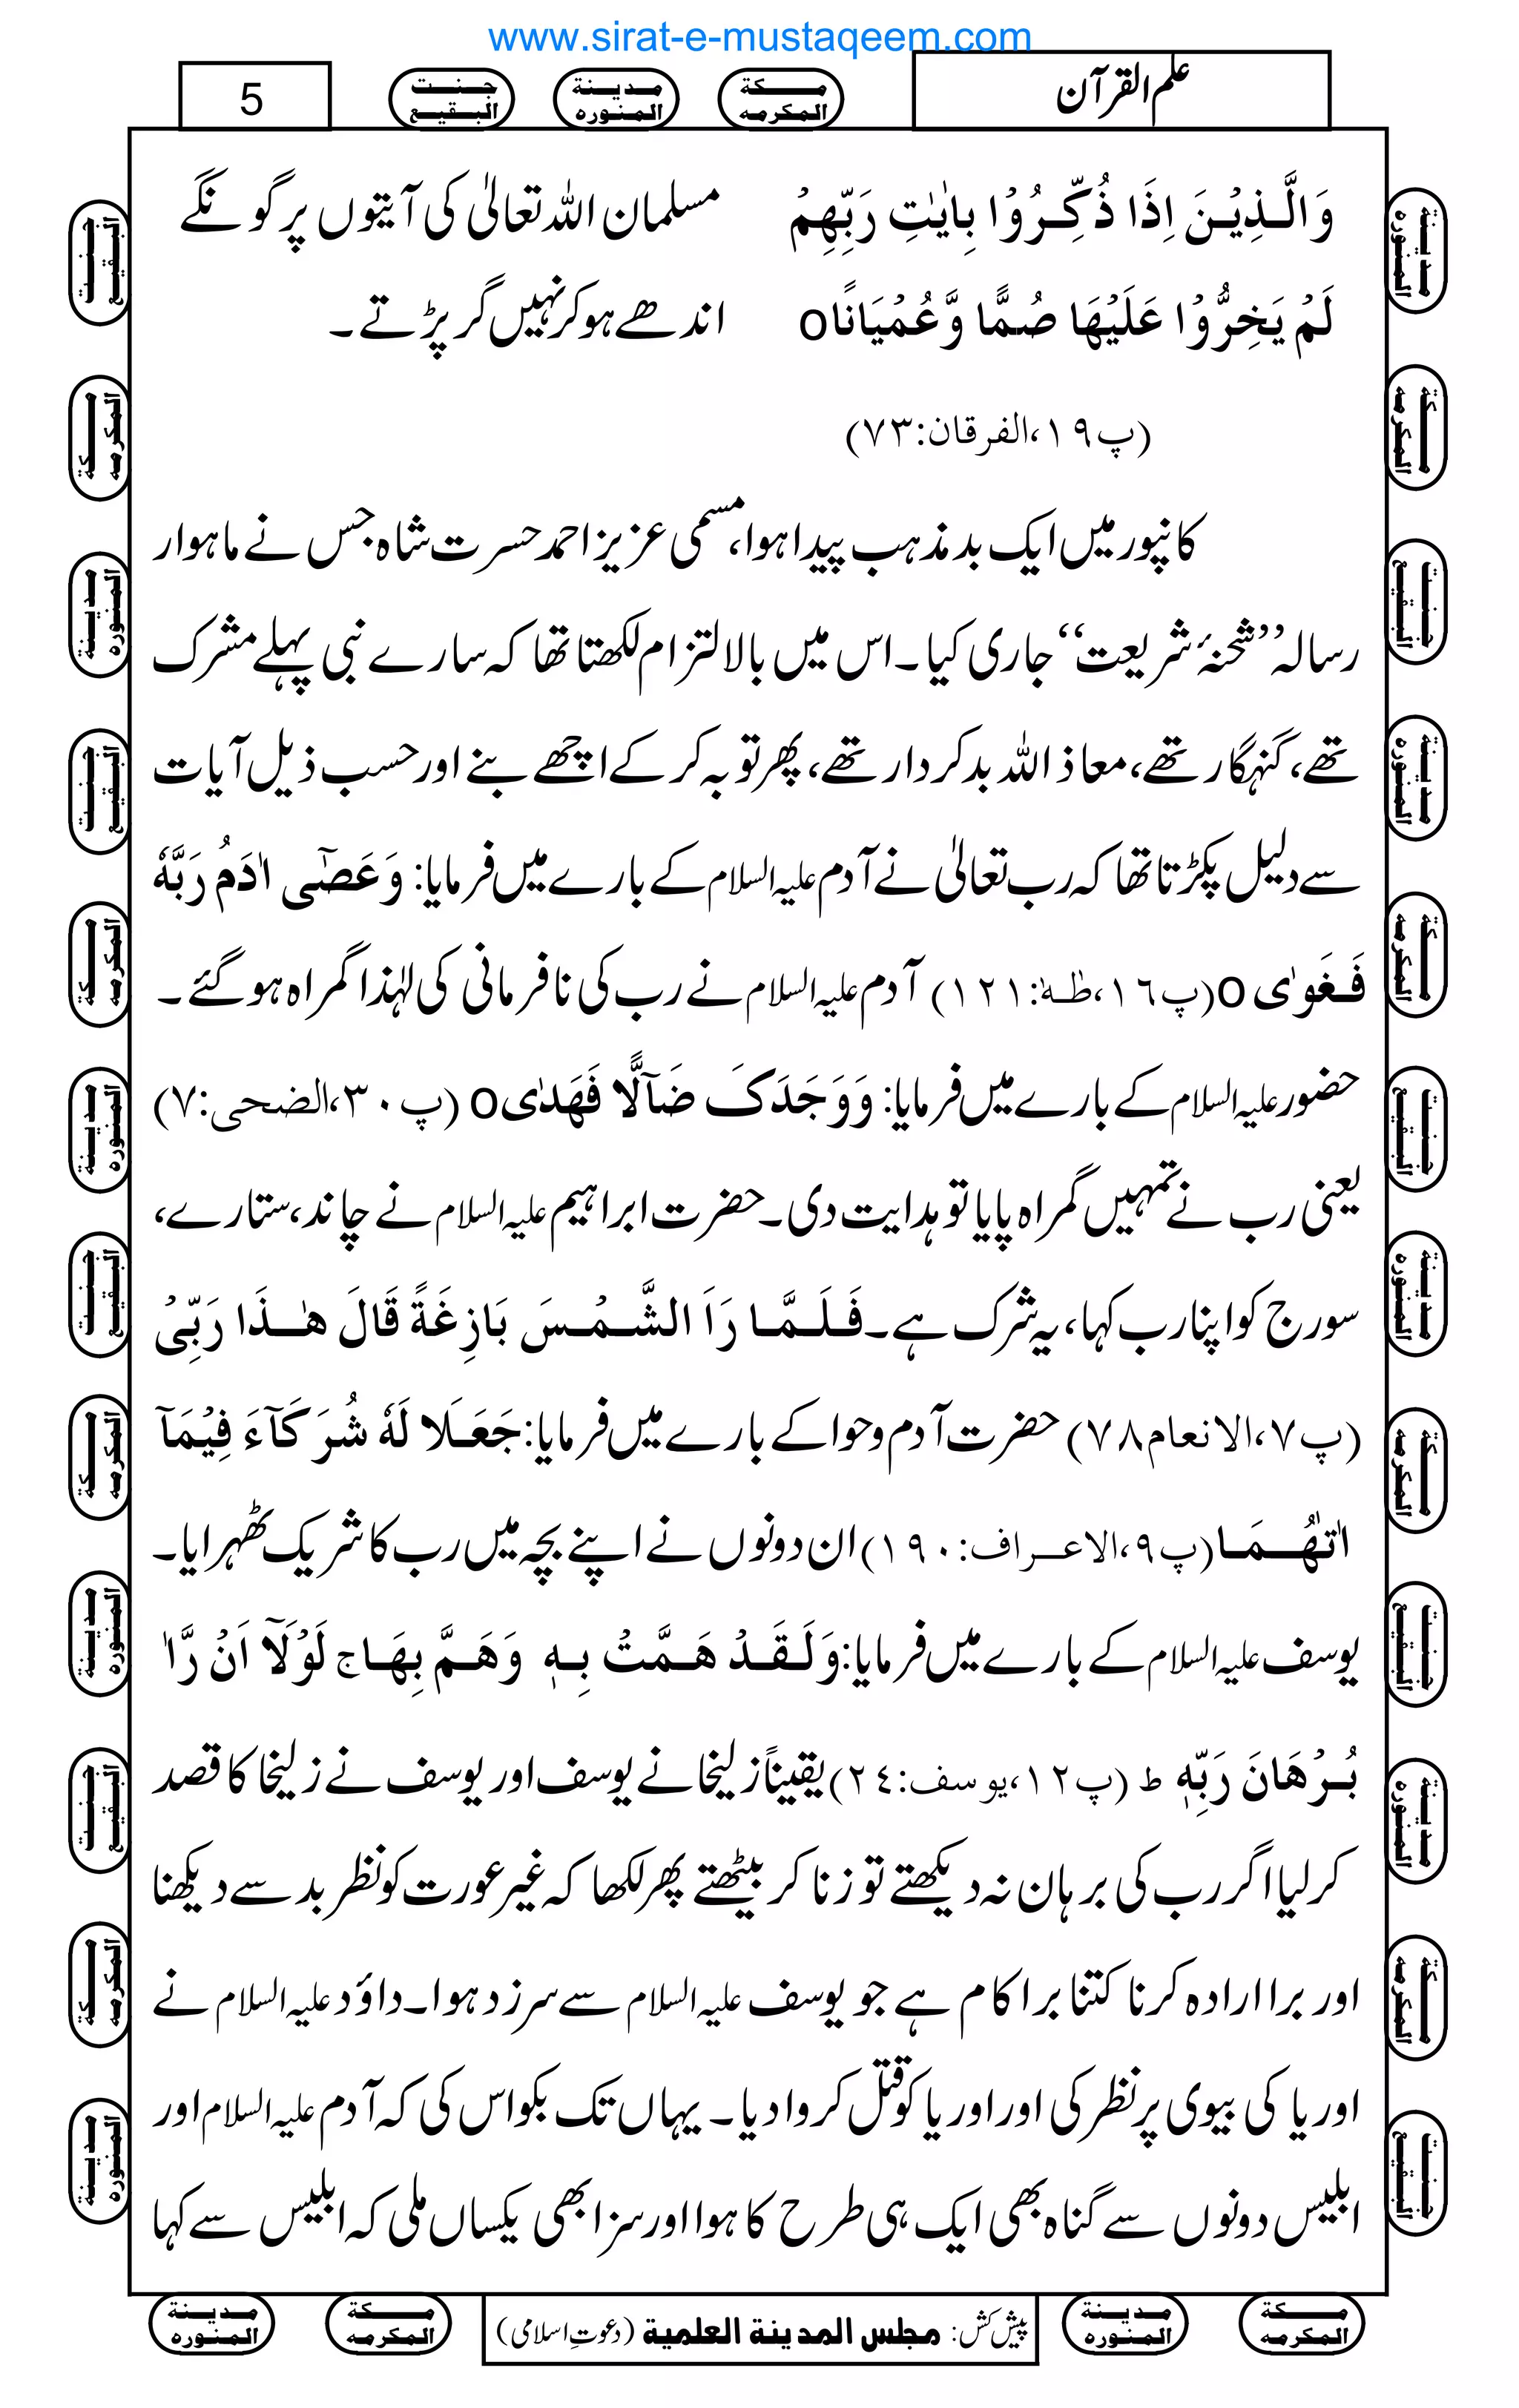 www.sirat-e-mustaqeem.com
علم القرآن
مکة المکرمه
مدینة المنوره
جنت البقیع
5
وَالَّذِیْنَ اِذَا ذُکِّرُوْا بِاٰیٰتِ رَبِّهِمْ مسلمان اللہ تعالیٰ کی آیتوں پر گونگے
لَمْ یَخِرُّوْا عَلَیْهَا صُمًّا وَّعُمْیَانًاo اندھے ہو کر نہیں گر پڑتے۔
(پ١٩،الفرقان:٧٣)
کانپور میں ایک بدمذہب پیدا ہوا، مسمی عزیز احمد حسرت شاہ جس نے ماہوار
رسالہ ’’شحنۂ شریعت‘‘ جاری کیا۔ اس میں بالالتزام لکھتا تھا کہ سارے نبی پہلے مشرک
تھے، گنہگار تھے، معاذ اللہ بدکردار تھے، پھر توبہ کر کے اچھے بنے اور حسب ذیل آیات
سے دلیل پکڑتا تھا کہ رب تعالیٰ نے آدم علیہ السلام کے بارے میں فرمایا: وَعَصٰٓی اٰدَمُ رَبَّهٗ
فَغَوٰی o (پ١٦،طٰهٰ:١٢١) آدم علیہ السلام نے رب کی نافرمانی کی لہٰذا گمراہ ہو گئے۔
حضور علیہ السلام کے بارے میں فرمایا: وَوَجَدَکَ ضَآلًّا فَهَدٰی o (پ٣٠،الضحی:٧)
یعنی رب نے تمہیں گمراہ پایا تو ہدایت دی۔ حضرت ابراہیم علیہ السلام نے چاند، ستارے،
سورج کو اپنا رب کہا، یہ شرک ہے۔ فَلَمَّا رَاَ الشَّمْسَ بَازِغَةً قَالَ هٰذَا رَبِّیْ
(پ٧،الانعام٧٨) حضرت آدم وحوا کے بارے میں فرمایا: جَعَلَا لَهٗ شُرَکَآءَ فِیْمَآ
اٰتٰهُمَا (پ٩،الاعراف:١٩٠) ان دونوں نے اپنے بچہ میں رب کا شریک ٹھہرایا۔
یوسف علیہ السلام کے بارے میں فرمایا: وَلَقَدْ هَمَّتْ بِهٖ وَهَمَّ بِهَا ج لَوْلَآ اَنْ رَّاٰ
بُرْهَانَ رَبِّهٖ ط (پ١٢،یوسف:٢٤) یقیناً زلیخا نے یوسف اور یوسف نے زلیخا کا قصد
کر لیا اگر رب کی برہان نہ دیکھتے تو زنا کر بیٹھتے پھر لکھا کہ غیر عورت کو نظر بد سے دیکھنا
اور برا ارادہ کرنا کتنا برا کام ہے جو یوسف علیہ السلام سے سرزد ہوا۔ داؤد علیہ السلام نے
اوریا کی بیوی پر نظر کی اور اوریا کو قتل کروا دیا۔ یہاں تک بکواس کی کہ آدم علیہ السلام اور
ابلیس دونوں سے گناہ بھی ایک ہی طرح کا ہوا اور سزا بھی یکساں ملی کہ ابلیس سے کہا
پیش کش: مجلس المدینة العلمیة (دعوتِ اسلامی)